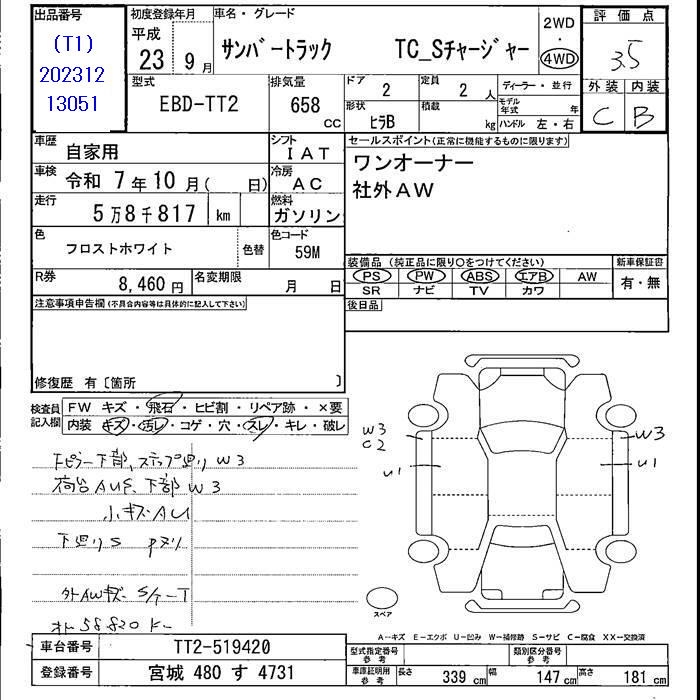 出品番号
(T1)
202312
13051
初度登録年月
平成
23 9月
車名・グレード
サンバートラック TC_Sチャージャー
2WD
・
4WD
評価点
3.5
外装 内装
C B
型式
EBD-TT2
排気量
658
cc
ドア
2
定員
2人
形状
ヒラB
積載
kg
ディーラー・並行
モデル年式 年
ハンドル 左・右
車歴
自家用
シフト
IAT
車検
令和 7年10月( 日)
冷房
AC
走行
5万8千817 km
燃料
ガソリン
色
フロストホワイト
色替
色コード
59M
R券
8,460円
名変期限
月 日
セールスポイント(正常に機能するものに限ります)
ワンオーナー
社外AW
装備品 (純正品に限り○をつけてください)
PS PW ABS エアB AW
SR ナビ TV カワ
新車保証書
有・無
後日品
注意事項申告欄(不具合内容等は具体的に記入して下さい)
修復歴 有〔箇所 〕
検査員
記入欄
FW キズ・飛石・ヒビ割・リペア跡・×要
内装 キズ・汚レ・コゲ・穴・スレ・キレ・破レ
W3
荷台AUS、下部W3
小キズAU
下廻りS
外AWキズ
58820
W3
C2
U1
W3
U1
スペア
A―キズ E―エクボ U―凹み W―補修跡 S―サビ C―腐食 XX―交換済
車台番号
TT2-519420
登録番号
宮城 480 す 4731
型式指定番号
参考
類別区分番号
参考
車庫証明用
参考
長さ 339 cm 幅 147 cm 高さ 181 cm